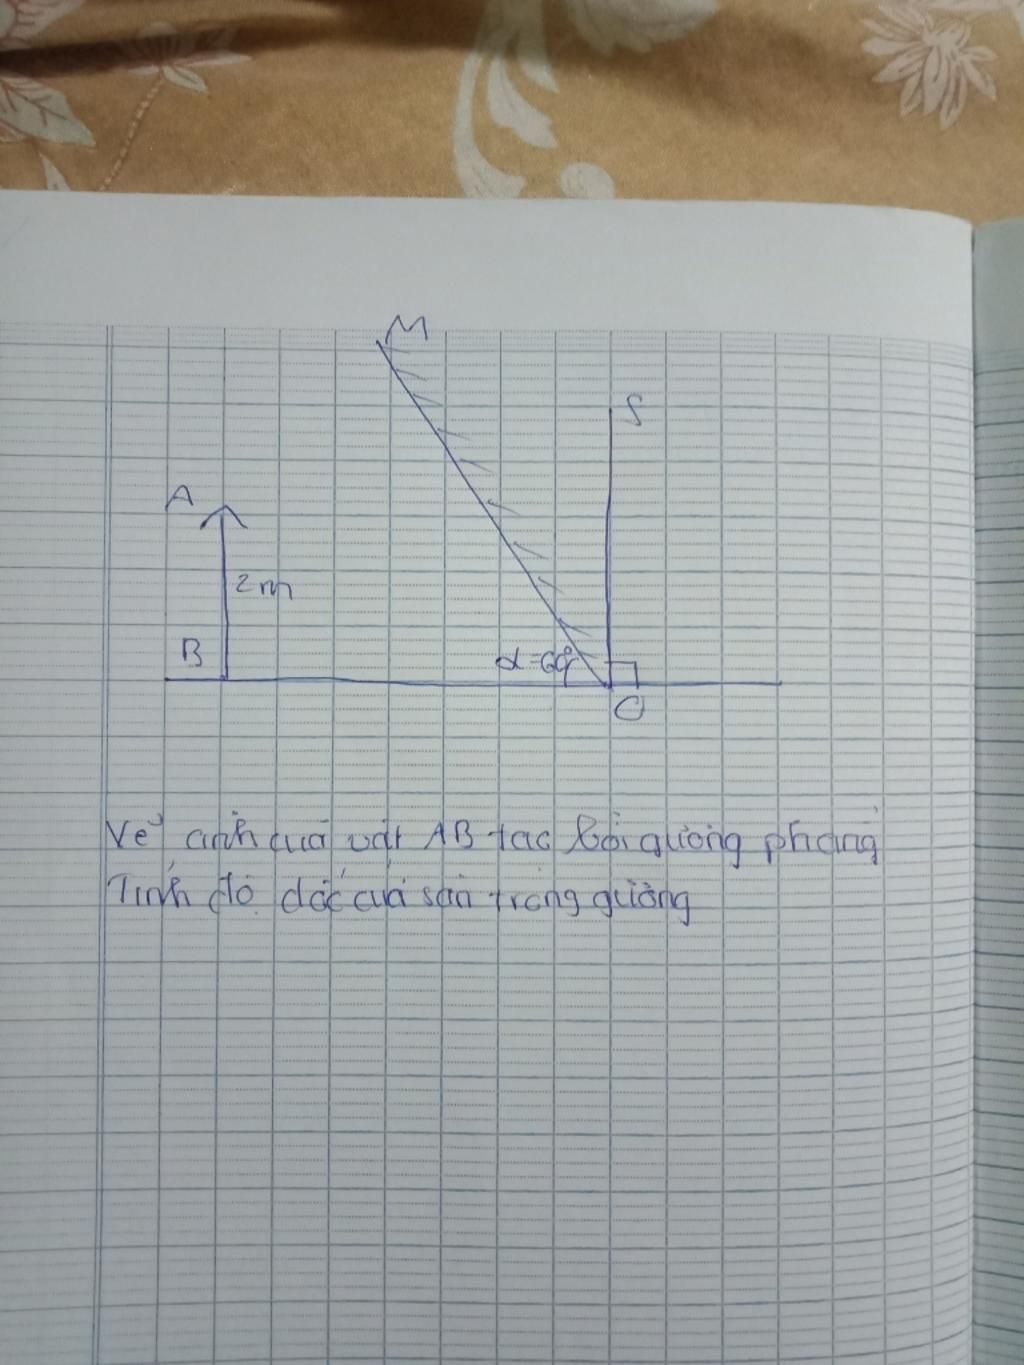 M
S
A
2m
B
α=60°
O
Vẽ ảnh của vật AB tạo bởi gương phẳng
Tính độ dốc của sàn trong gương